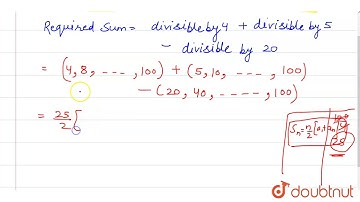 Required Sum = divisible by 4 + divisible by 5
- divisible by 20
= (4, 8, ---, 100) + (5, 10, ---, 100)
- (20, 40, ----, 100)
= 25/2 [
Sn = n/2 [a + an]
25
doubtnut